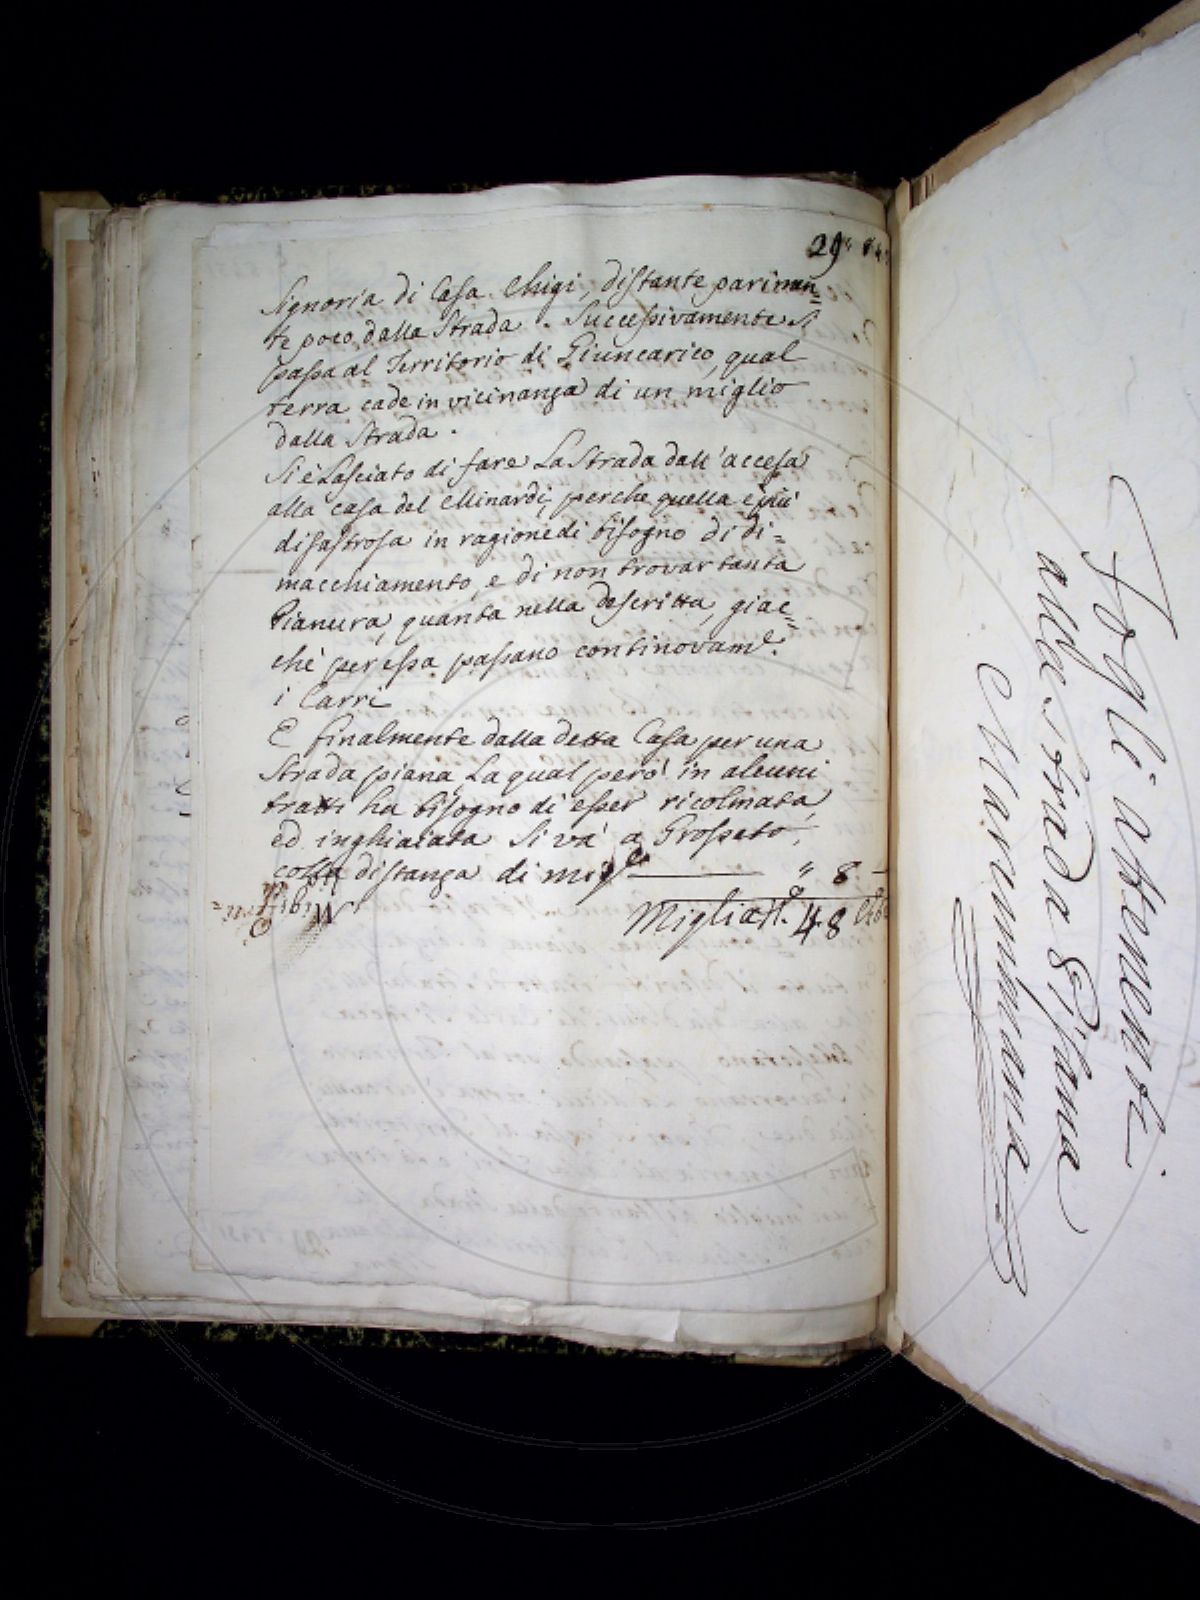 29
Signoria di Casa Chigi, distante pariman=
te poco dalla Strada. Successivamente si
passa al Territorio di Giuncarico, qual
terra cade in vicinanza di un miglio
dalla Strada.
Si è Lasciato di fare La Strada dall'accesa
alla casa del Minardi, perche quella è più
disastrosa in ragione di bisogno di di=
macchiamento, e di non trovar tanta
Pianura, quanta nella descritta, giac=
chè per essa passano continovam.e
i Carri
E finalmente dalla detta Casa per una
Strada piana, La qual però in alcuni
tratti ha bisogno di esser ricolmata,
ed inghiaiata si và a Grosseto,
colla distanza di mig.e " 8 —
Miglia 48
Fogli attenenti
alla strada Pisana
Maremmana